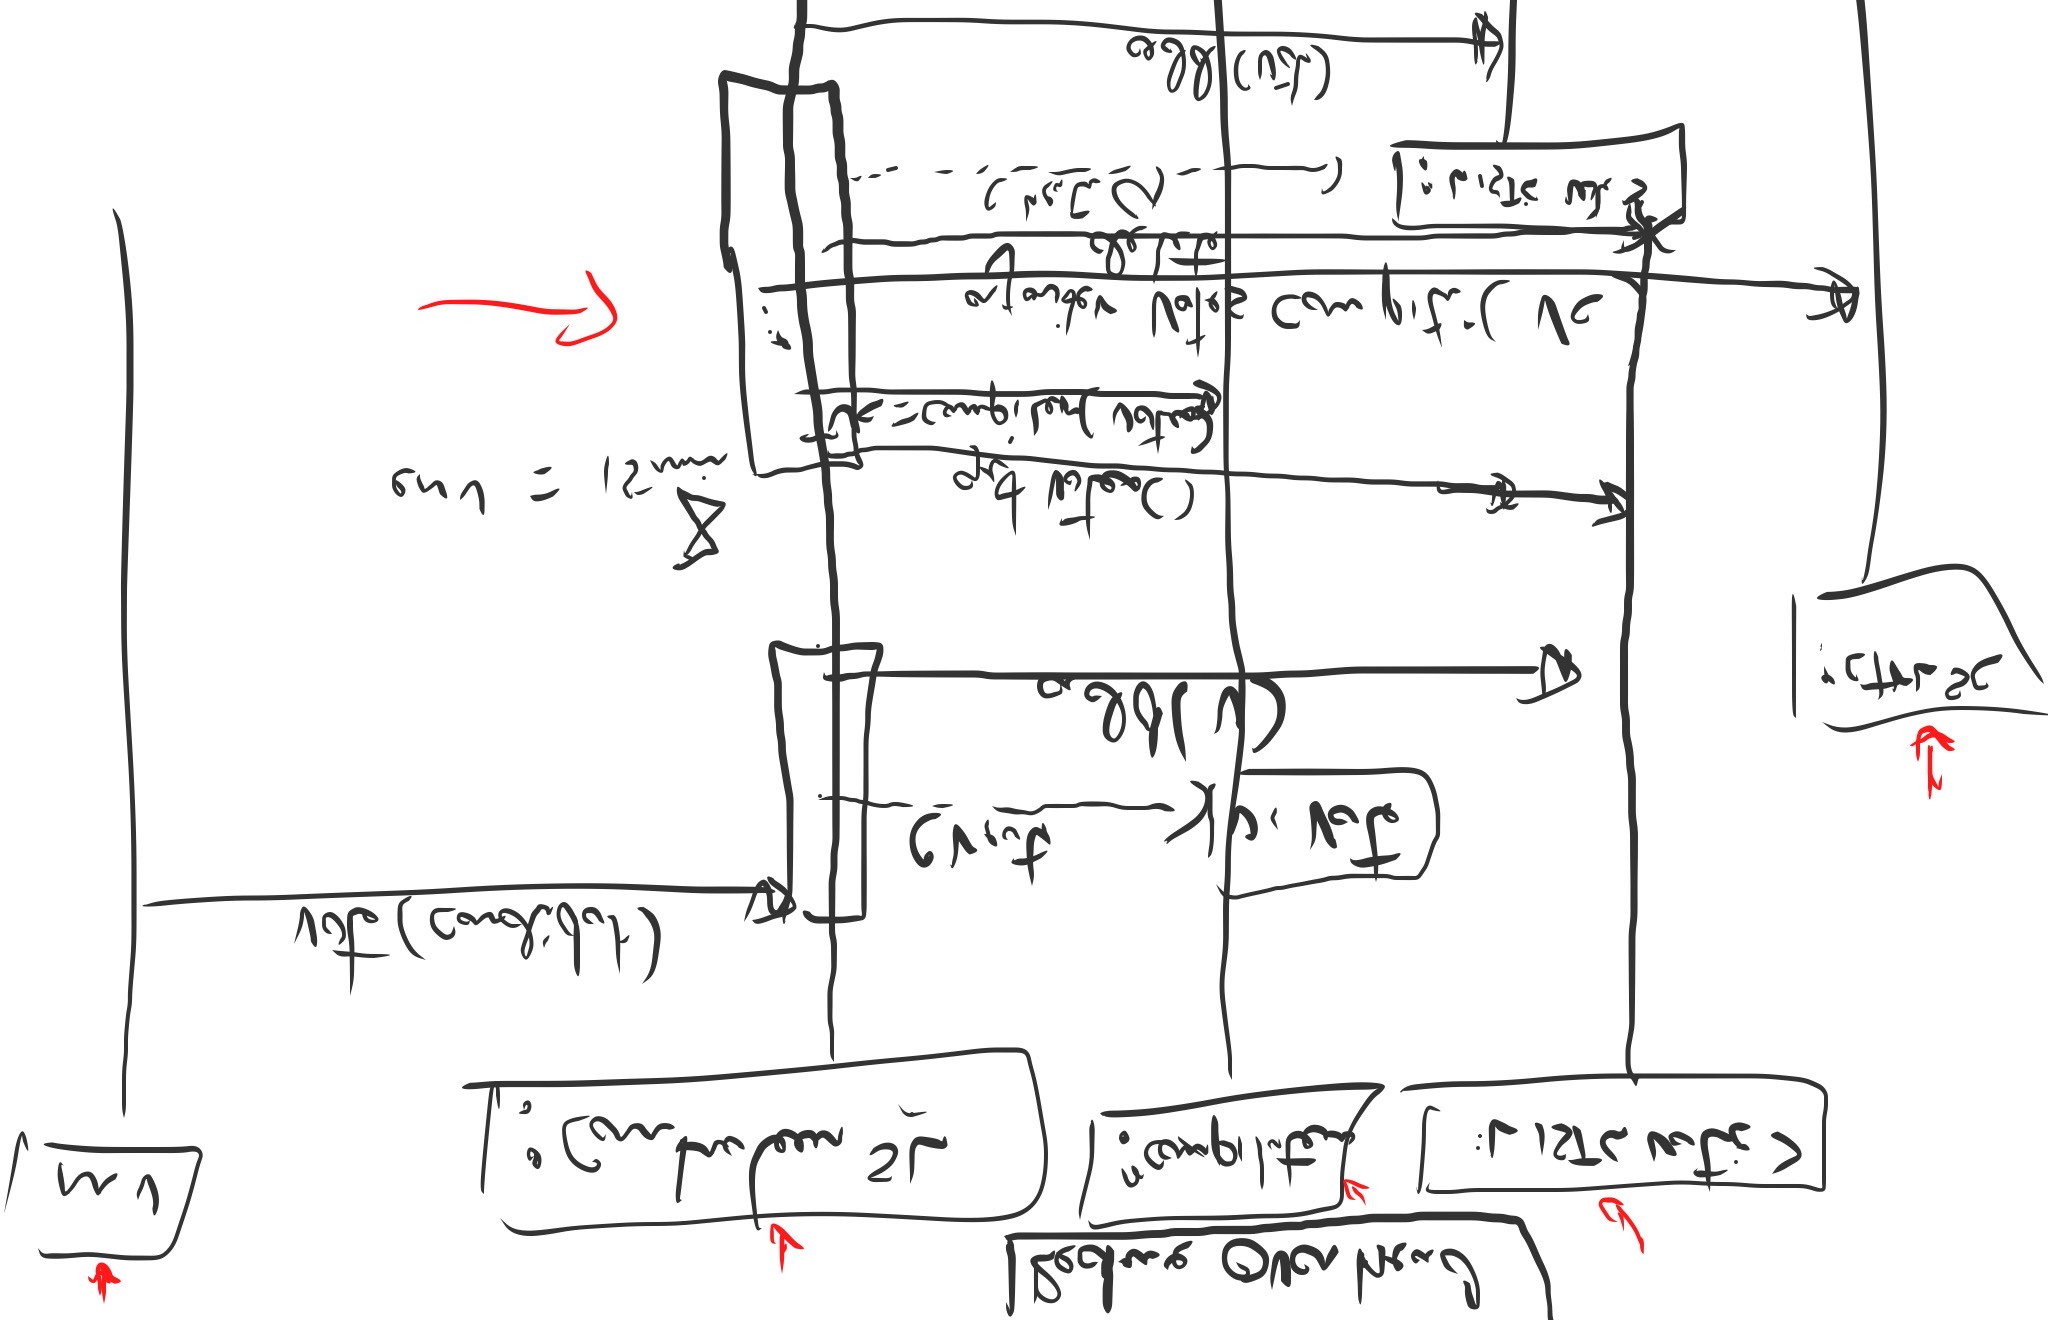 Reduce Overhead
MV
:Controleur SL
:Compilateur
:LISTE votes >
vote(candidat)
create
v: Vote
add(v)
:CTRL SC
env = 15min
get votes()
vc = compiler(votes)
ajouter Votes Compil(Vc
delete
create()
:LISTE votes
add(vote)